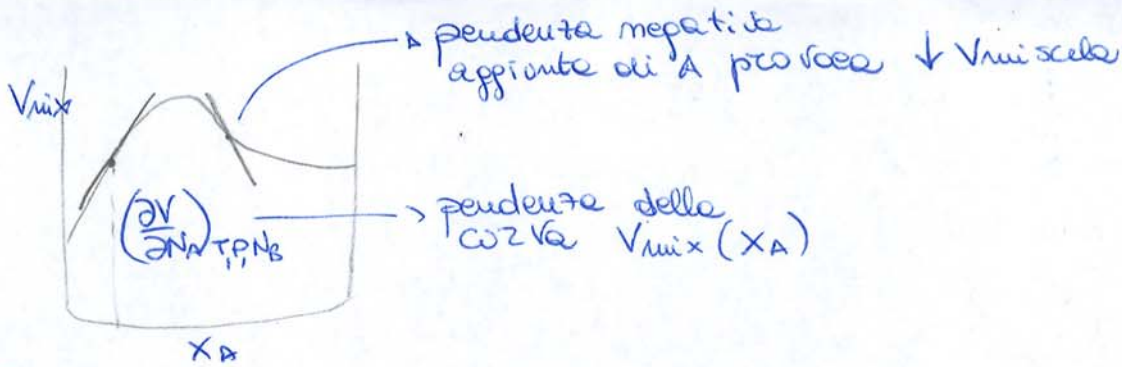 pendenza negativa
aggiunta di A provoca ↓ Vmiscela
Vmix
(∂V/∂NA)T,P,NB
pendenza della
curva Vmix (XA)
XA